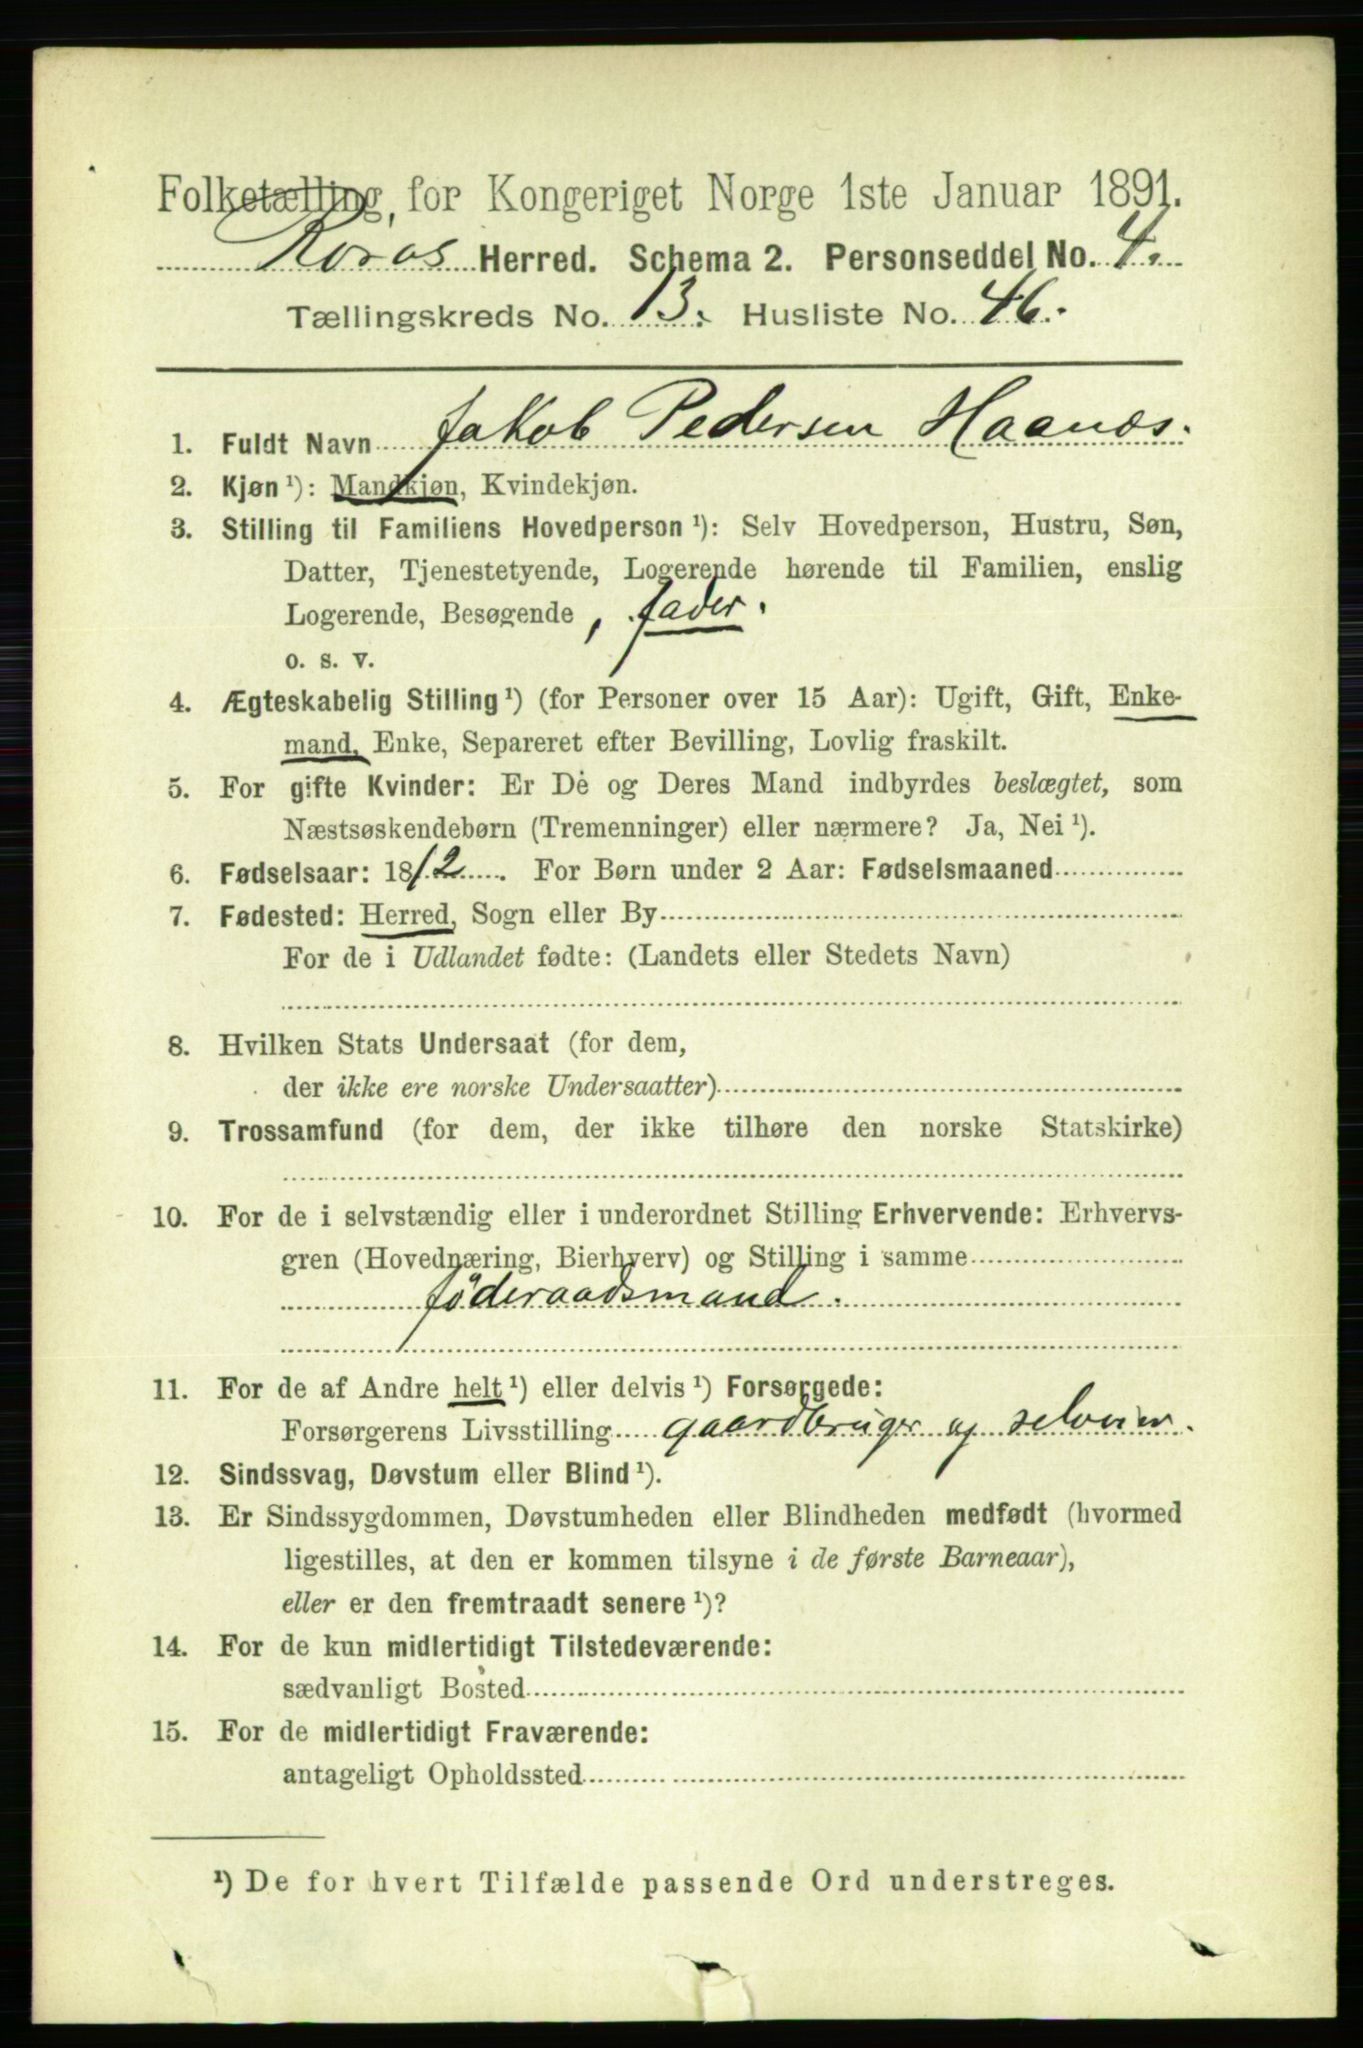 Folketælling for Kongeriget Norge 1ste Januar 1891.
Roros Herred. Schema 2. Personseddel No. 4.
Tællingskreds No. 13. Husliste No. 46.
1. Fuldt Navn Jakob Pedersen Haanæs.
2. Kjøn ¹): Mandkjøn, Kvindekjøn.
3. Stilling til Familiens Hovedperson ¹): Selv Hovedperson, Hustru, Søn,
Datter, Tjenestetyende, Logerende hørende til Familien, enslig
Logerende, Besøgende, fader.
o. s. v.
4. Ægteskabelig Stilling ¹) (for Personer over 15 Aar): Ugift, Gift, Enke-
mand, Enke, Separeret efter Bevilling, Lovlig fraskilt.
5. For gifte Kvinder: Er De og Deres Mand indbyrdes beslægtet, som
Næstsøskendebørn (Tremenninger) eller nærmere? Ja, Nei ¹).
6. Fødselsaar: 1812. For Børn under 2 Aar: Fødselsmaaned
7. Fødested: Herred, Sogn eller By
For de i Udlandet fødte: (Landets eller Stedets Navn)
8. Hvilken Stats Undersaat (for dem,
der ikke ere norske Undersaatter)
9. Trossamfund (for dem, der ikke tilhøre den norske Statskirke)
10. For de i selvstændig eller i underordnet Stilling Erhvervende: Erhvervs-
gren (Hovednæring, Bierhverv) og Stilling i samme
föderaadsmand.
11. For de af Andre helt ¹) eller delvis ¹) Forsørgede:
Forsørgerens Livsstilling gaardbruger og selveier.
12. Sindssvag, Døvstum eller Blind ¹).
13. Er Sindssygdommen, Døvstumheden eller Blindheden medfødt (hvormed
ligestilles, at den er kommen tilsyne i de første Barneaar),
eller er den fremtraadt senere ¹)?
14. For de kun midlertidigt Tilstedeværende:
sædvanligt Bosted
15. For de midlertidigt Fraværende:
antageligt Opholdssted
¹) De for hvert Tilfælde passende Ord understreges.